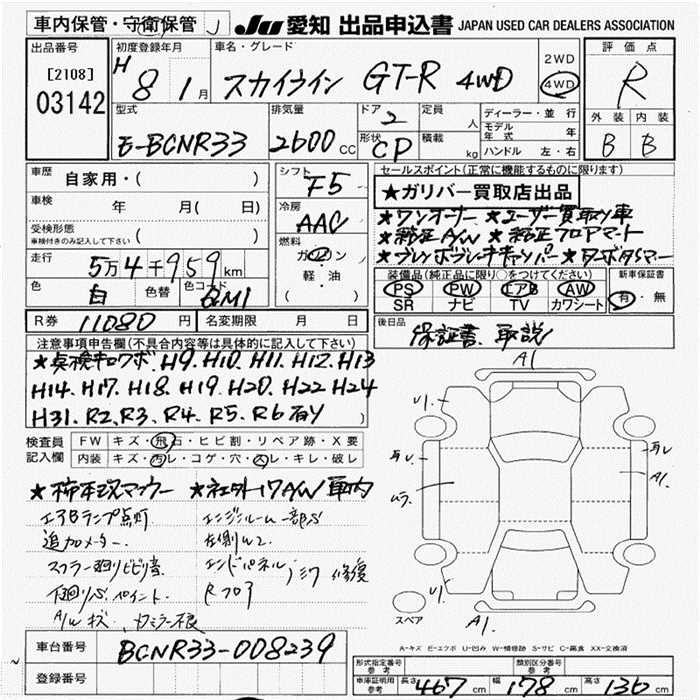 車内保管・守衛保管
JU 愛知 出品申込書 JAPAN USED CAR DEALERS ASSOCIATION
出品番号
[2108]
03142
初度登録年月
H 8 1月
車名・グレード
スカイライン GT-R 4WD
2WD
4WD
評価点
R
外装 内装
B B
型式
E-BCNR33
排気量
2600 CC
ドア 2
形状 CP
定員 人
積載 kg
ディーラー・並行
モデル年式 年
ハンドル 左・右
車歴 自家用・( )
車検 年 月(日)
受検形態
車検付きのみ記入して下さい ( )
走行 5万4千959km
色 白 色替 色コード QM1
シフト F5
冷房 AAC
燃料
ガソリン
軽・油
( )
セールスポイント(正常に機能するものに限ります)
★ガリバー買取店出品
★ワンオーナー ★ユーザー買取り車
★純正A/W ★純正フロアマート
★ブレンボブレーキキャリパー ★ターボタイマー
装備品(純正品に限り○をつけてください)
PS PW エアB AW
SR ナビ TV カワシート
新車保証書
有・無
R券 11080円 名変期限 月 日
後日品
保証書、取説
注意事項申告欄(不具合内容等は具体的に記入して下さい)
★点検キロクボ、H9、H10、H11、H12、H13
H14、H17、H18、H19、H20、H22、H24
H31、R2、R3、R4、R5、R6有り
検査員記入欄
FW キズ・飛石・ヒビ割・リペア跡・X要
内装 キズ・汚レ・コゲ・穴・スレ・キレ・破レ
★柿本改マフラー ★社外17A/W 車内
エアBランプ点灯 エンジンルーム一部S
追加メーター 左側W2
エンドパネル 修復
Rフロア
下回りS、ペイント
A/Wキズ、
A1
U1
A1
U1
A1
スペア
A-キズ E-エクボ U-凹み W-補修跡 S-サビ C-腐食 XX-交換済
車台番号 BCNR33-008239
登録番号
形式指定番号 参考
類別区分番号 参考
車庫証明用 参考 長さ 467cm 幅 178cm 高さ 136cm